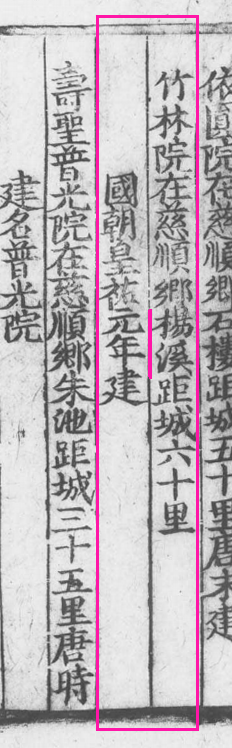 依圓院在慈順鄉石樓距城五十里唐末建
竹林院在慈順鄉楊溪距城六十里
國朝皇祐元年建
壽聖普光院在慈順鄉朱池距城三十五里唐時
建名普光院